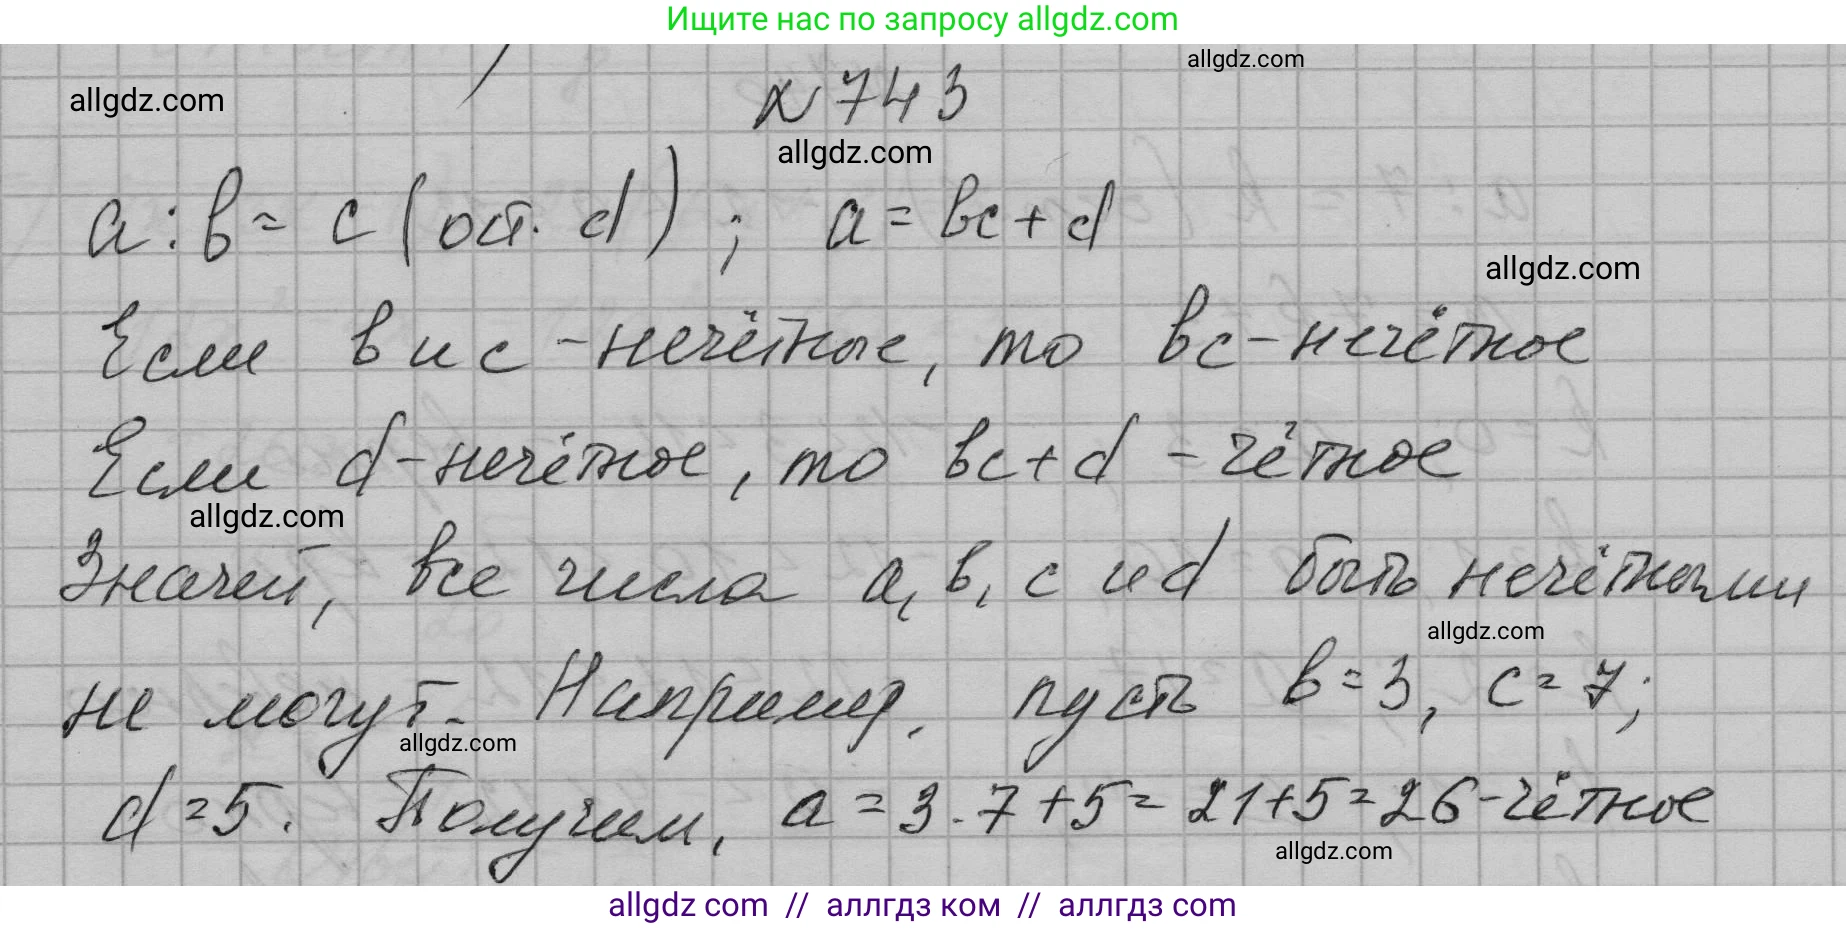 Ищите нас по запросу allgdz.com
allgdz.com
allgdz.com
№743
allgdz.com
a:b=c(ост. d); a=bc+d
allgdz.com
Если b и c - нечётные, то bc - нечётное
Если d - нечётное, то bc+d - чётное
allgdz.com
Значит, все числа a, b, c и d быть нечётными
allgdz.com
не могут. Например, пусть b=3, c=7;
allgdz.com
d=5. Получим, a=3·7+5=21+5=26-чётное
allgdz.com
allgdz com // аллгдз ком // аллгдз com